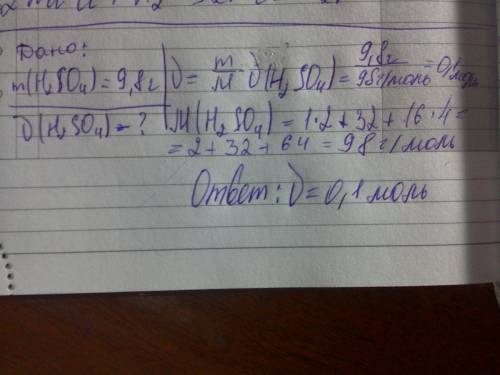 Дано:
m(H₂SO₄)=9,8г
ν(H₂SO₄)-?
ν= m/M ν(H₂SO₄)= 9,8г/98г/моль =0,1моль
M(H₂SO₄)=1·2+32+16·4=
=2+32+64=98г/моль
Ответ: ν=0,1моль